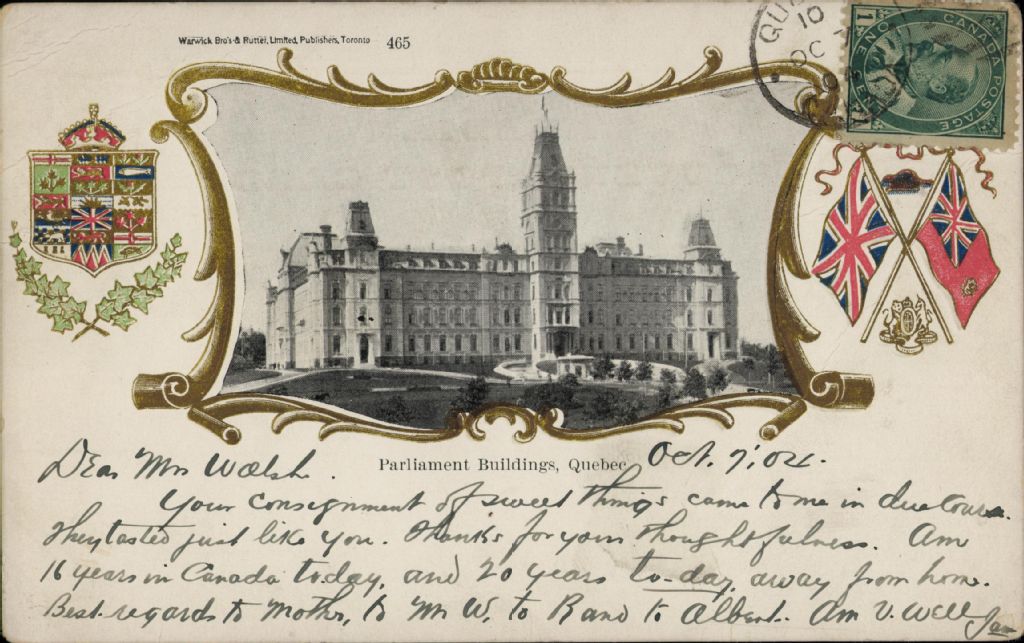 Warwick Bro's & Rutter, Limited, Publishers, Toronto 465
QU
10
OC
04
CANADA POSTAGE
1 ONE CENT
Parliament Buildings, Quebec
Oct. 7, 04.
Dear Mrs Walsh.
Your consignment of sweet things came to me in due course.
They tasted just like you. Thanks for your thoughtfulness. Am
16 years in Canada today, and 20 years to-day, away from home.
Best regards to Mother, to Mr W. to R and to Albert. Am V. Well